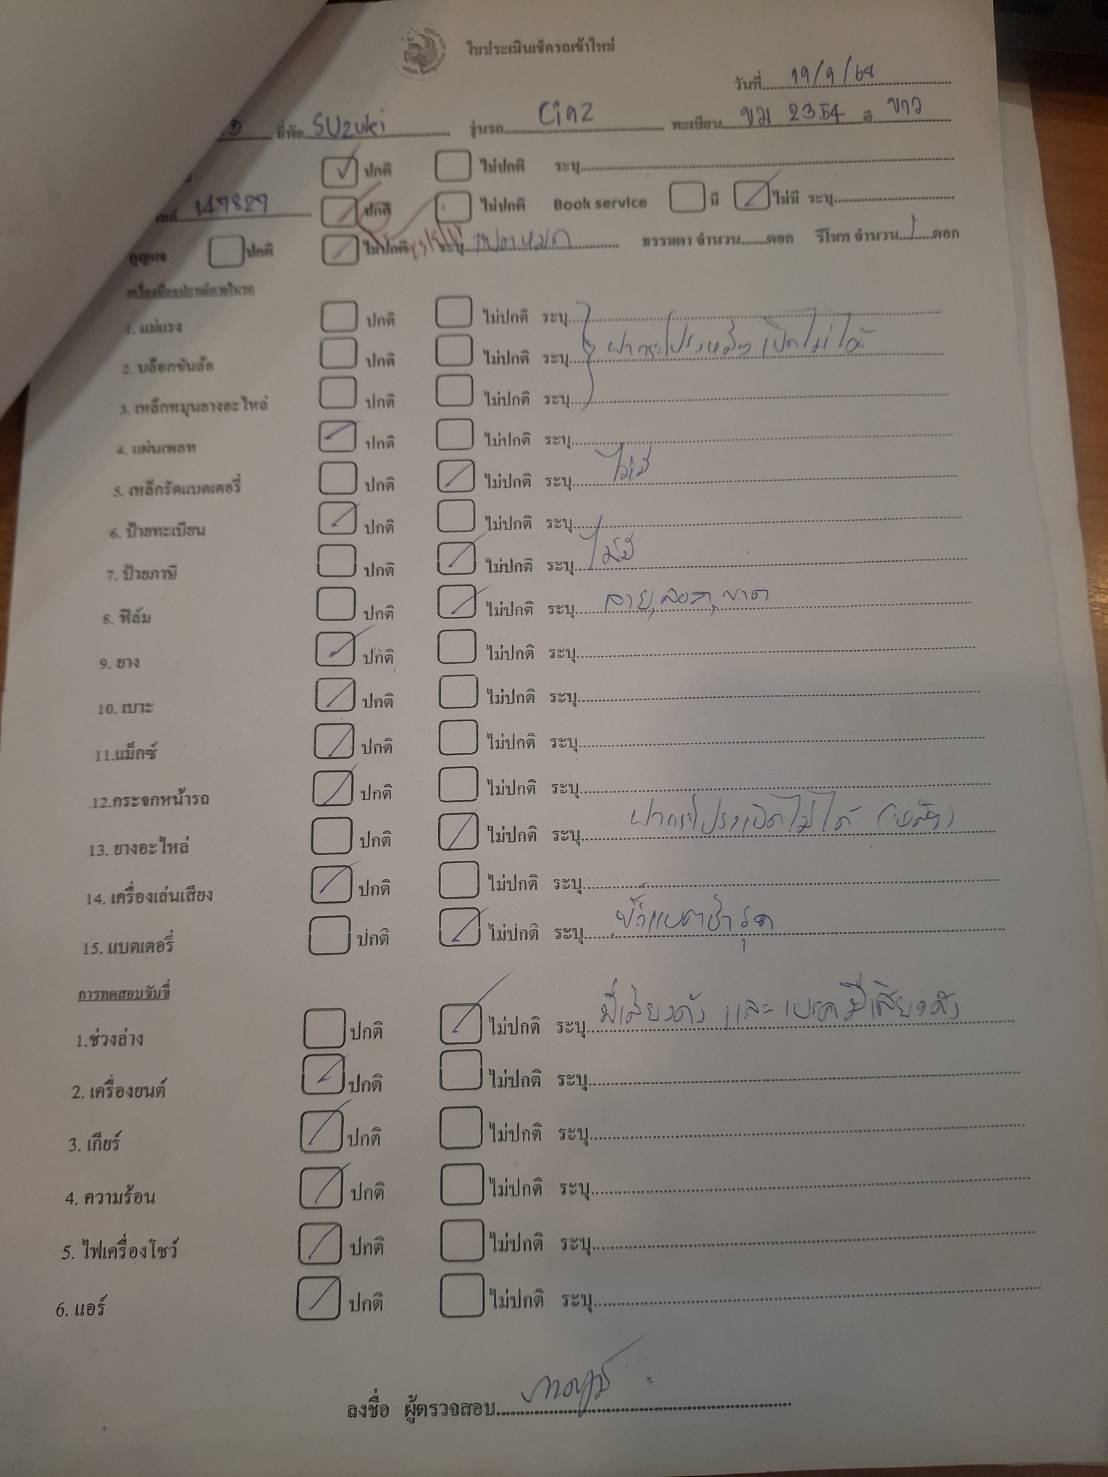 ใบประเมินเช็ครถเข้าใหม่
วันที่ 19/9/68
ยี่ห้อ Suzuki รุ่นรถ Ciaz ทะเบียน ขม 2354 สี ขาว
ปกติ ไม่ปกติ ระบุ
147829 ปกติ ไม่ปกติ Book service มี ไม่มี ระบุ
กุญแจ ปกติ ไม่ปกติ ระบุ ธรรมดา จำนวน ดอก รีโมท จำนวน 1 ดอก
เครื่องมืออุปกรณ์ภายในรถ
1. แม่แรง ปกติ ไม่ปกติ ระบุ
2. บล็อกขันล้อ ปกติ ไม่ปกติ ระบุ ฝากระโปรงหลังเปิดไม่ได้
3. เหล็กหมุนยางอะไหล่ ปกติ ไม่ปกติ ระบุ
4. แผ่นเพลท ปกติ ไม่ปกติ ระบุ
5. เหล็กรัดแบตเตอรี่ ปกติ ไม่ปกติ ระบุ ไม่มี
6. ป้ายทะเบียน ปกติ ไม่ปกติ ระบุ
7. ป้ายภาษี ปกติ ไม่ปกติ ระบุ ไม่มี
8. ฟิล์ม ปกติ ไม่ปกติ ระบุ ลาย,ลอก,ขาด
9. ยาง ปกติ ไม่ปกติ ระบุ
10. เบาะ ปกติ ไม่ปกติ ระบุ
11.แม็กซ์ ปกติ ไม่ปกติ ระบุ
12.กระจกหน้ารถ ปกติ ไม่ปกติ ระบุ
13. ยางอะไหล่ ปกติ ไม่ปกติ ระบุ ฝากระโปรงเปิดไม่ได้ (หลัง)
14. เครื่องเล่นเสียง ปกติ ไม่ปกติ ระบุ
15. แบตเตอรี่ ปกติ ไม่ปกติ ระบุ ขั้วแบตชำรุด
การทดสอบขับขี่
1.ช่วงล่าง ปกติ ไม่ปกติ ระบุ มีเสียงดัง และ เบรคมีเสียงดัง
2. เครื่องยนต์ ปกติ ไม่ปกติ ระบุ
3. เกียร์ ปกติ ไม่ปกติ ระบุ
4. ความร้อน ปกติ ไม่ปกติ ระบุ
5. ไฟเครื่องโชว์ ปกติ ไม่ปกติ ระบุ
6. แอร์ ปกติ ไม่ปกติ ระบุ
ลงชื่อ ผู้ตรวจสอบ